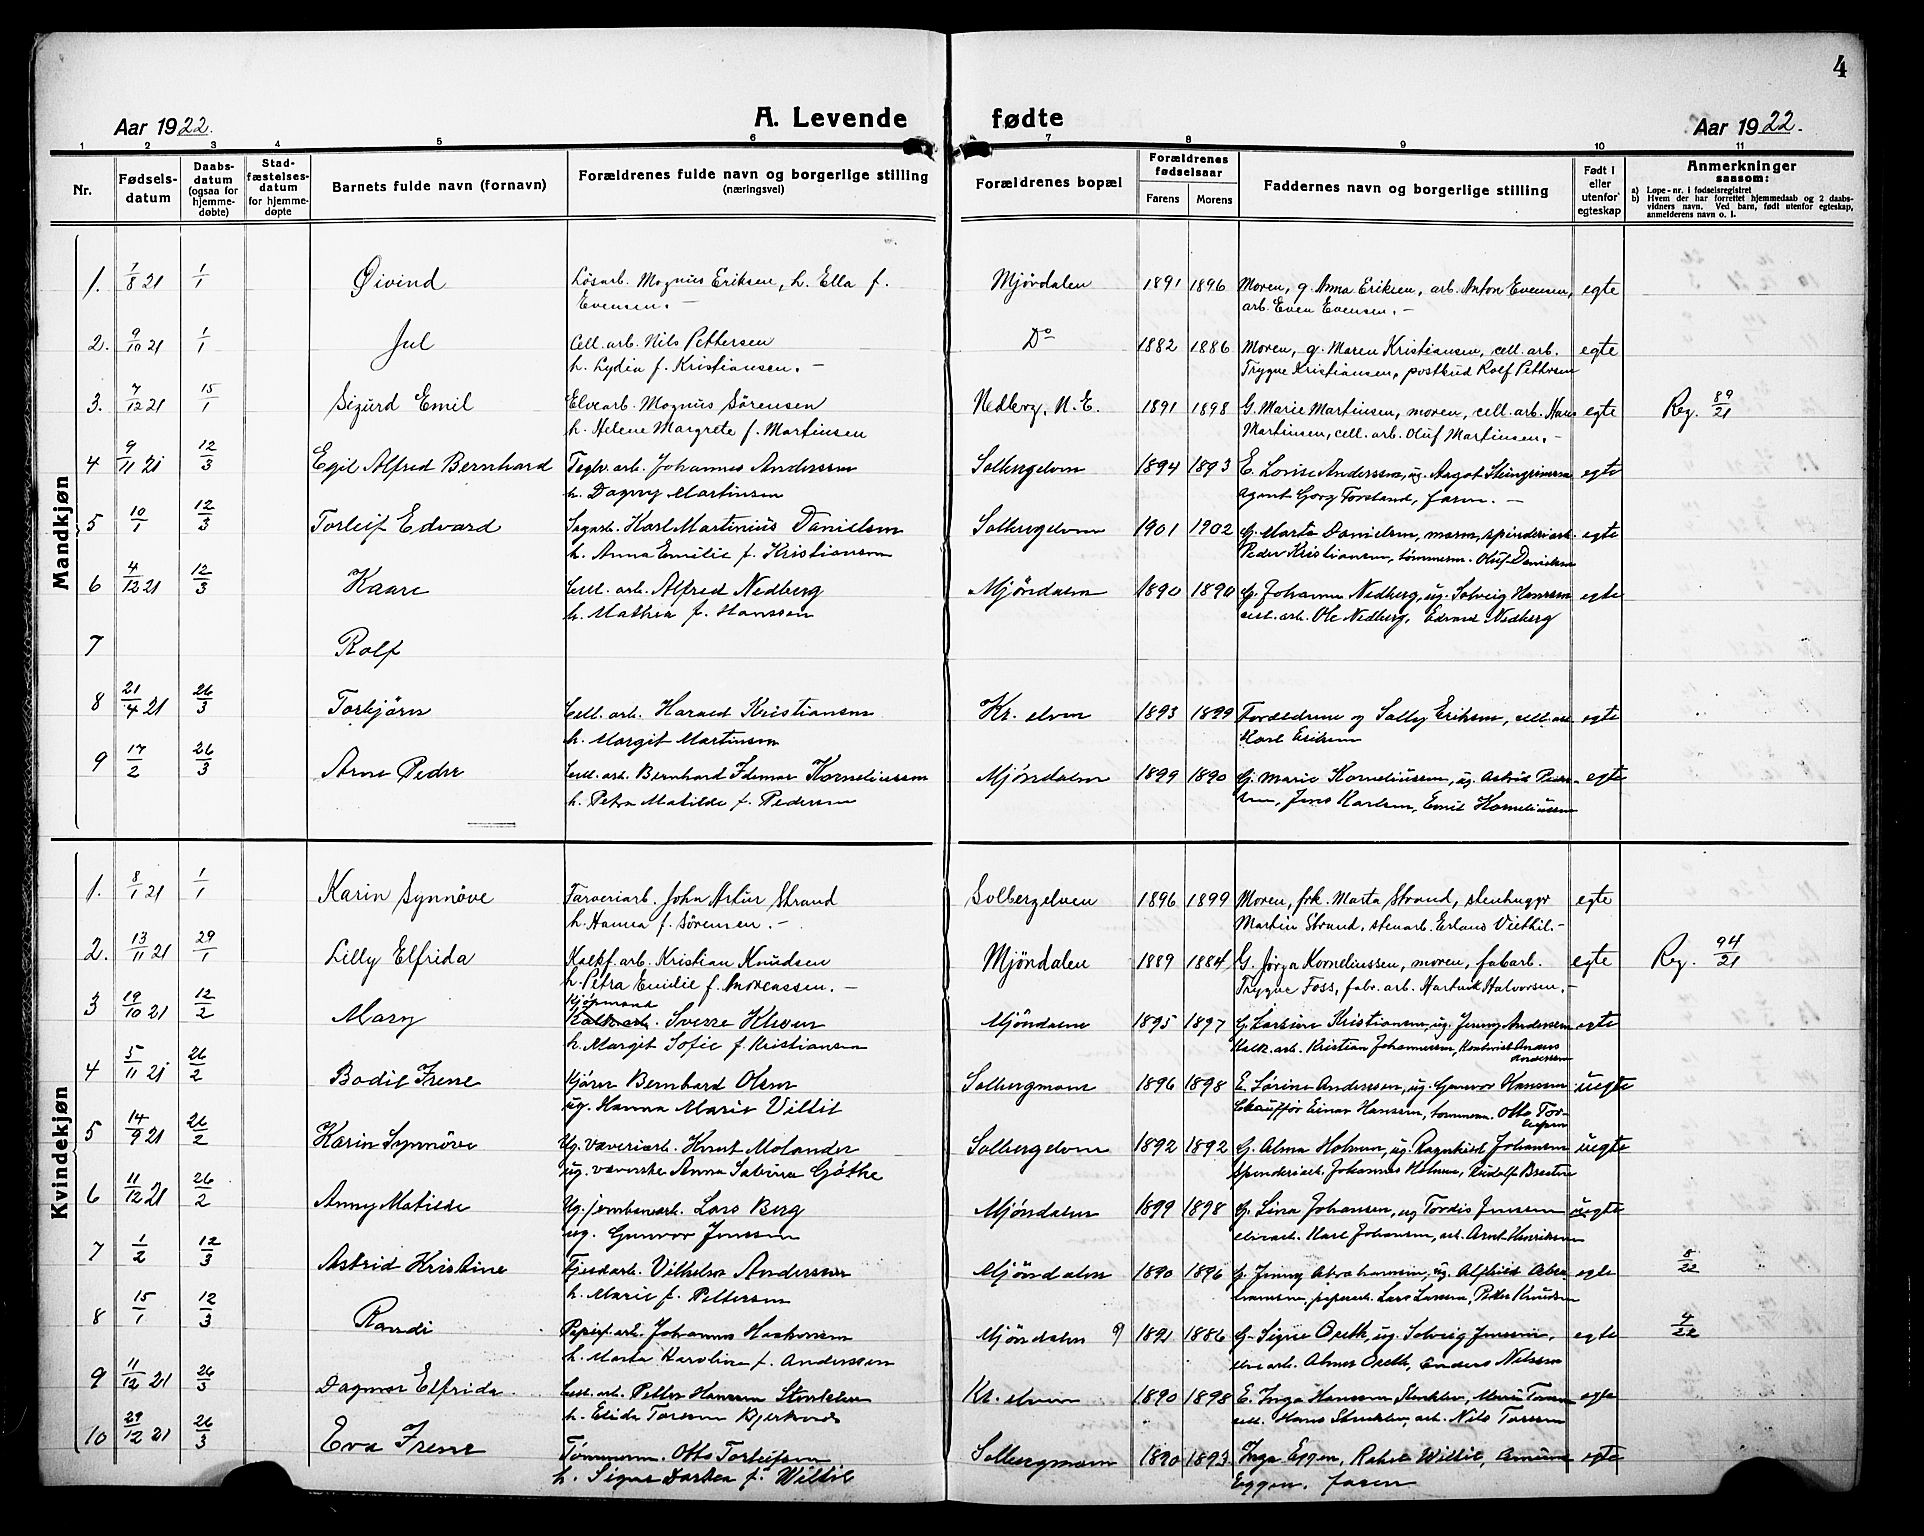 4
Aar 1922.
A. Levende fødte
Aar 1922.
1 2 3 4 5 6 7 8 9 10 11
Nr.
Fødsels-datum
Daabs-datum (ogsaa for hjemme-døbte)
Stad-fæstelses-datum for hjemme-døpte
Barnets fulde navn (fornavn)
Forældrenes fulde navn og borgerlige stilling (næringsvei)
Forældrenes bopæl
Forældrenes fødselsaar
Farens Morens
Faddernes navn og borgerlige stilling
Født i eller utenfor egteskap
Anmerkninger saasom:
a) Løpe-nr. i fødselsregistret
b) Hvem der har forrettet hjemmedaab og 2 daabs-vidners navn. Ved barn, født utenfor egteskap, anmelderens navn o. l.
Mandkjøn
1. 7/8 21 1/1 Øivind Løsarb. Magnus Eriksen, h. Ella f. Mjøndalen 1891 1896 Moren, g. Anna Eriksen, arb. Anton Evensen, egte
Evensen. — arb. Even Evensen. —
2. 9/10 21 1/1 Jul Cell. arb. Nils Pettersen Do 1882 1886 Moren, g. Maren Kristiansen, cell. arb. egte
h. Lydia f. Kristiansen. — Trygve Kristiansen, postbud Rolf Pettersen
3. 7/12 21 15/1 Sigurd Emil Elvearb. Magnus Sørensen Nedberg, N. E. 1891 1898 G. Marie Martinsen, moren, cell. arb. Hans egte Reg. 89/21
h. Helene Margrete f. Martinsen Martinsen, cell. arb. Oluf Martinsen. —
4 9/11 21 12/3 Egil Alfred Bernhard Teglv. arb. Johannes Anderssen Solbergelven 1894 1893 E. Lovise Anderssen, ug. Aagot Steingrimsen egte
h. Dagny Martinsen agent Georg Torstand, faren. —
5 10/1 12/3 Torleif Edvard Sagarb. Karl Martinius Danielsen Solbergelven 1901 1902 G. Marta Danielsen, moren, spinderiarb. egte
h. Anna Emilie f. Kristiansen Peder Kristiansen, tømmerm. Oluf Danielsen
6 4/12 21 12/3 Kaare Cell. arb. Alfred Nedberg Mjøndalen 1890 1890 G. Johanne Nedberg, ug. Solveig Hanssen egte
h. Mathea f. Hanssen cell. arb. Ole Nedberg, Edvard Nedberg
7 Rolf
8 21/4 21 26/3 Torbjørn Cell. arb. Harald Kristiansen Kr. elven 1893 1899 Forældrene og Sally Eriksen, cell. arb. egte
h. Margit Martinsen Karl Eriksen
9 17/2 26/3 Arne Peder Cell. arb. Bernhard Idemar Korneliussen Mjøndalen 1899 1890 G. Marie Korneliussen, ug. Astrid Peder- egte
h. Petra Matilde f. Pedersen sen, Jens Karlsen, Emil Korneliussen
Kvindekjøn
1. 8/1 21 1/1 Karin Synnøve Farveriarb. John Artur Strand Solbergelven 1896 1899 Moren, frk. Marta Strand, stenhugger egte
h. Hanna f. Sørensen. — Martin Strand, stenarb. Erland
2. 13/11 21 29/1 Lilly Elfrida Kalkf. arb. Kristian Knudsen Mjøndalen 1889 1884 G. Jørga Korneliussen, moren, fabarb. egte Reg. 94/21
h. Petra Emilie f. Andreassen. — Trygve Foss, fabr. arb. Hartvik Halvorsen. —
3 19/10 21 12/2 Mary Kjøpmand Kalkarb. Sverre Kleven Mjøndalen 1895 1897 G. Larsine Kristiansen, ug. Jenny Andersen egte
h. Margit Sofie f. Kristiansen Kalk. arb. Kristian Johannessen, Kontorist Anders Andersen
4 5/11 21 26/2 Bodil Irene Kjører Bernhard Olsen Solbergmoen 1896 1898 E. Lorine Andersen, ug. Gunvor Hanssen uegte
ug. Hanna Marie Villil Chauffør Einar Hanssen, tømmerm. Otto Torleifsen
5 14/9 21 26/2 Karin Synnøve Ug. væveriarb. Knut Molander Solbergelven 1892 1892 G. Alma Holmen, ug. Ragnhild Johansen uegte
ug. væverske Anna Sabina Göthe Spinderiarb. Johannes Holmen, Rudolf
6 11/12 21 26/2 Anny Matilde Ug. jernbanearb. Lars Berg Mjøndalen 1899 1898 G. Lina Johansen, ug Tordis Jenssen uegte
ug. Gunvor Jenssen elvearb. Karl Johansen, arb. Arnt Henriksen
7 1/2 12/3 Astrid Kristine Fjeldarb. Vilhelm Anderssen Mjøndalen 1890 1896 G. Jenny Abrahamsen, ug. Alfhild Abra- egte 8/22
h. Marie f. Pettersen hamsen, papirarb. Lars Larsen, Peder Knudsen
8 15/1 12/3 Randi Papirf. arb. Johannes Haakonsen Mjøndalen 1891 1886 G. Signe Oreth, ug. Solveig Jenssen, egte 4/22
h. Marta Karoline f. Anderssen elvearb. Almer Oreth, Anders Nilssen
9 11/12 21 26/3 Dagmar Elfrida. Cell. arb. Petter Hanssen Stenklev Kr. elven 1890 1898 E. Inga Hanssen Stenklev, Marie Toresen egte
h. Elida Toresen Bjerknes cell. Hans Stenklev, arb. Nils Toresen
10 29/12 21 26/3 Eva Irene Tømmerm. Otto Torleifsen Solbergmoen 1890 1893 Inga Eggen, Rakel Willil, Amund egte
h. Signe Dorthea f. Willil Eggen. faren